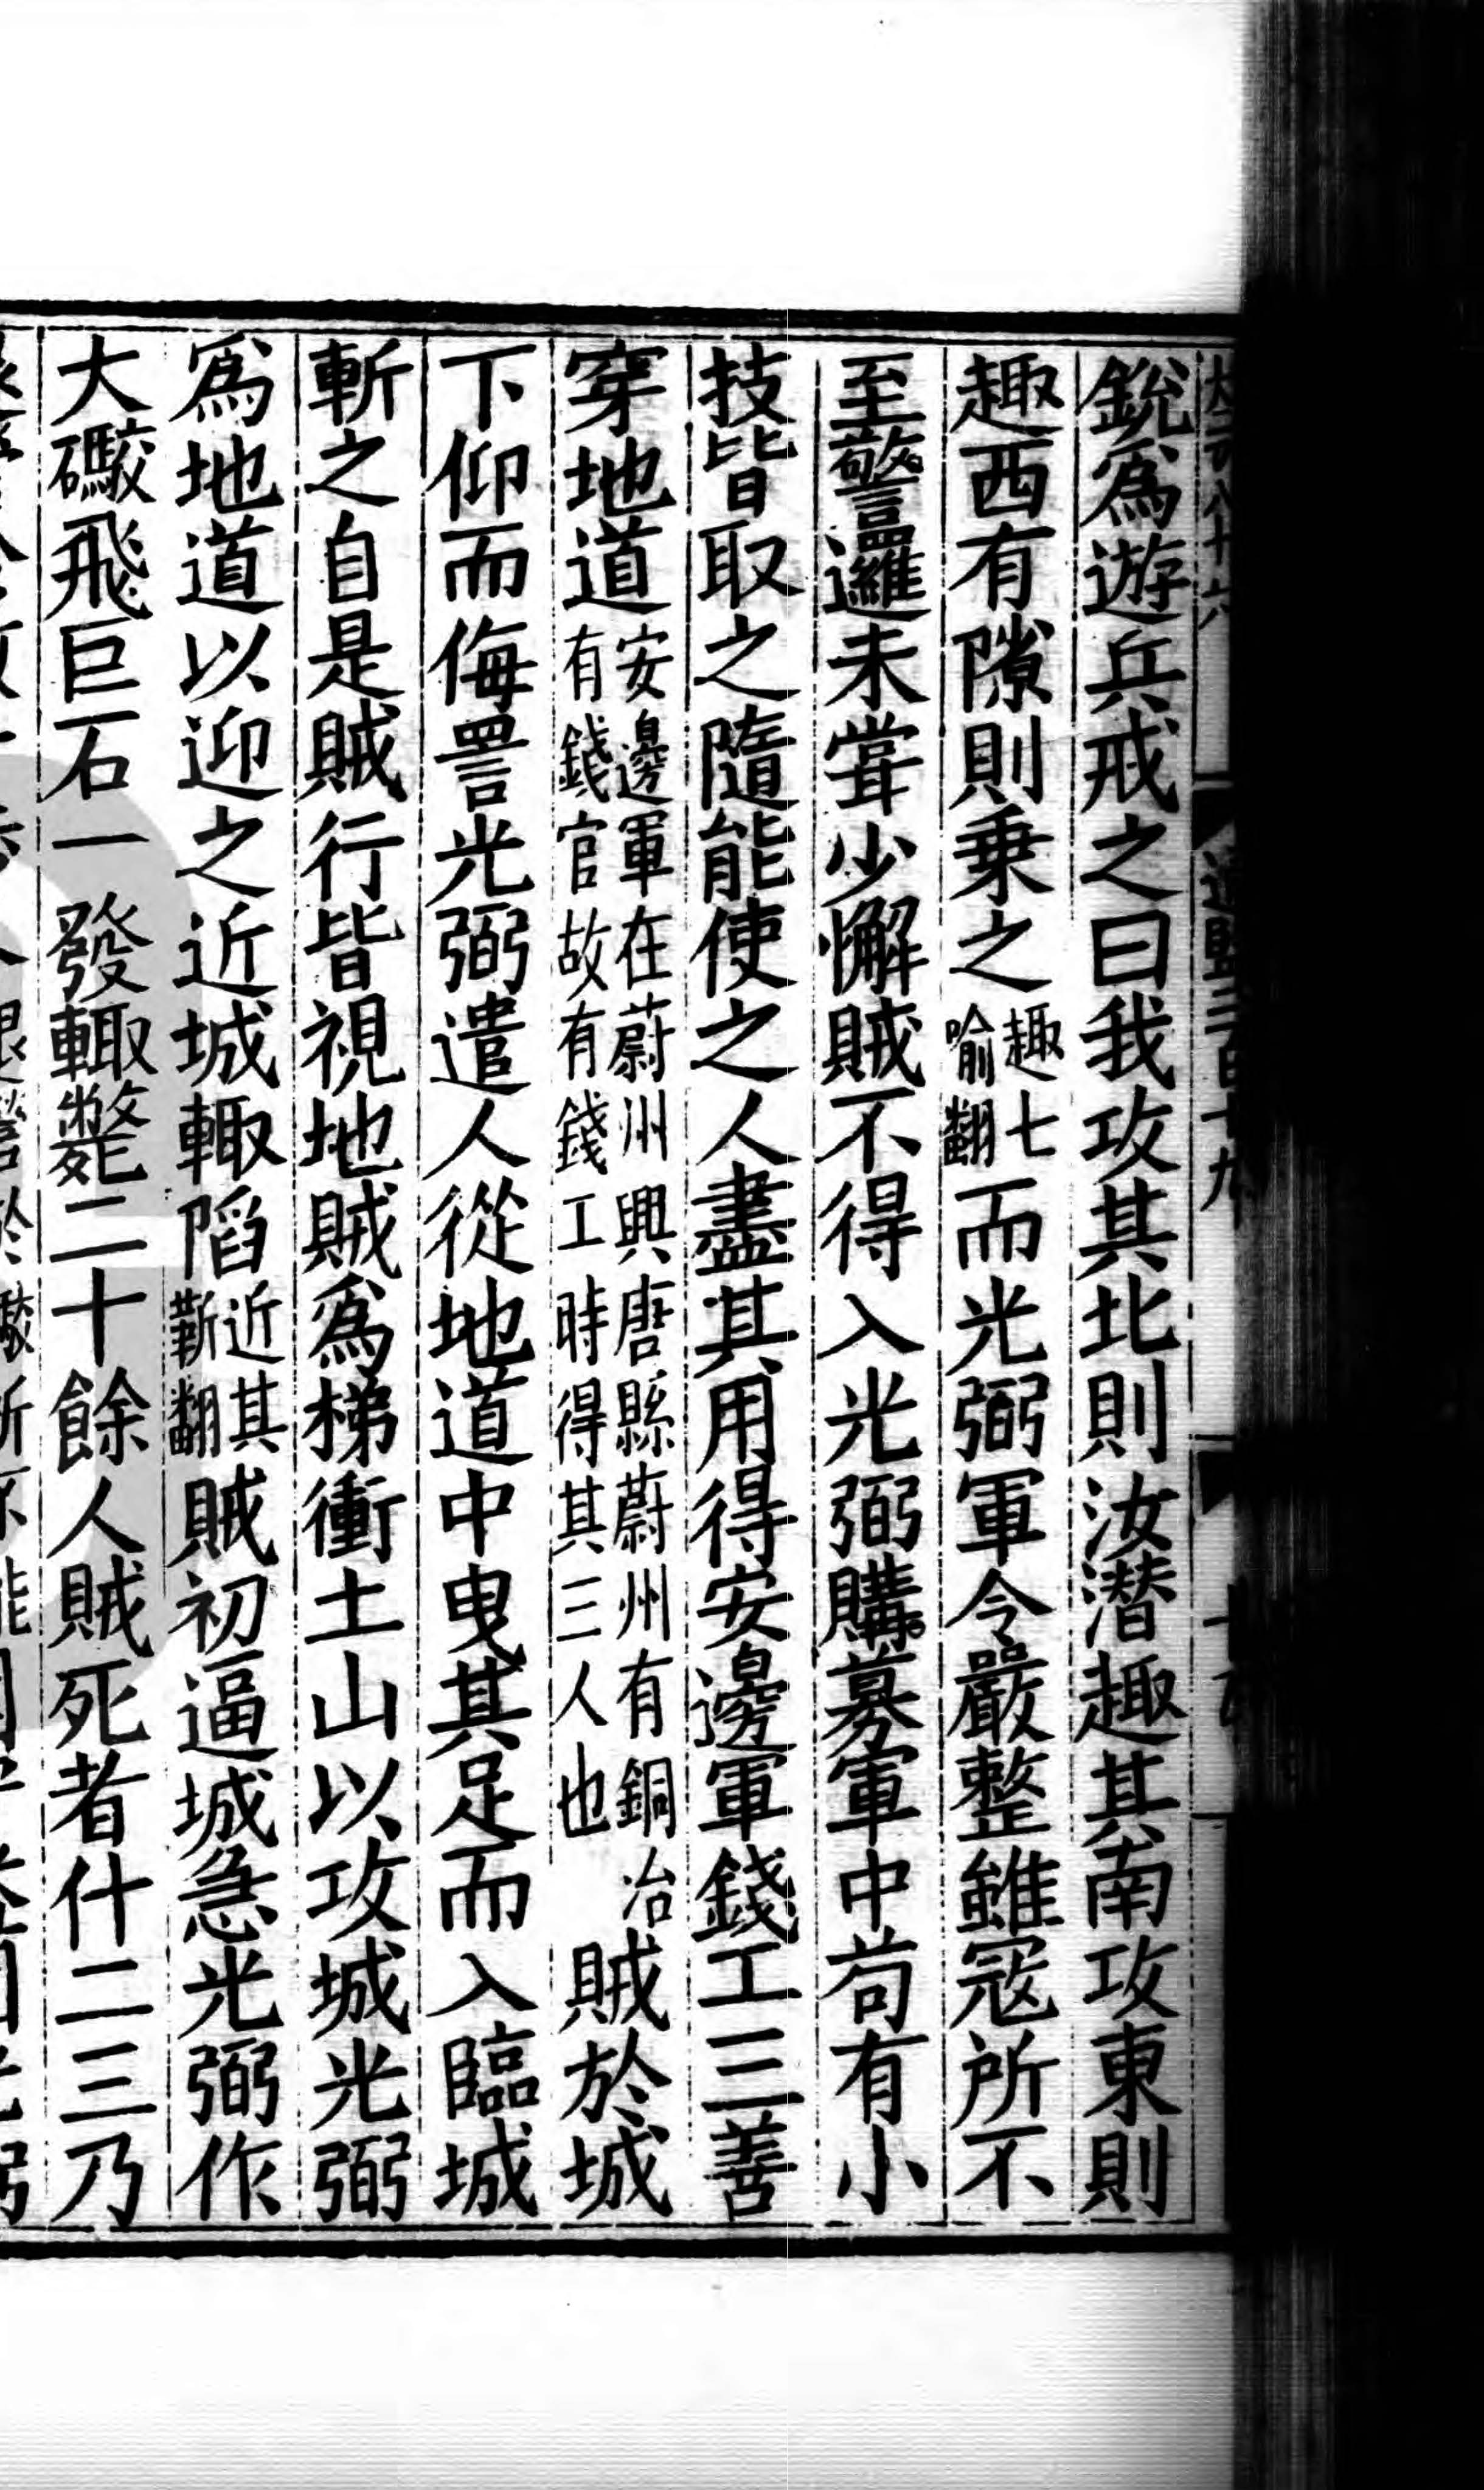 銳爲遊兵戒之曰我攻其北則汝潛趣其南攻東則
趣西有隙則乗之趣七喻翻而光弼軍令嚴整雖寇所不
至警邏未甞少懈賊不得入光弼購募軍中苟有小
技皆取之隨能使之人盡其用得安邊軍錢工三善
穿地道安邊軍在蔚州興唐縣蔚州有銅冶有錢官故有錢工時得其三人也賊於城
下仰而侮詈光弼遣人從地道中曳其足而入臨城
斬之自是賊行皆視地賊爲梯衝土山以攻城光弼
爲地道以迎之近城輙陷近其靳翻賊初逼城急光弼作
大礮飛巨石一發輙斃二十餘人賊死者什二三乃